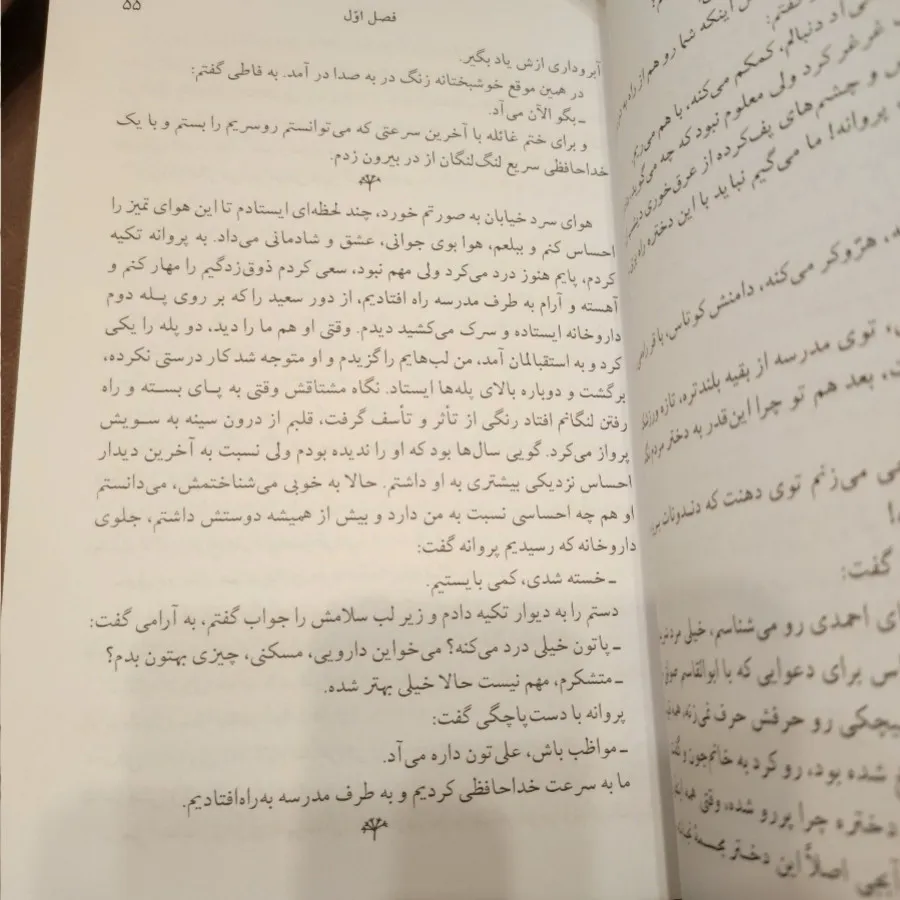 فصل اوّل
۵۵
آبروداری ازش یاد بگیر.
در همین موقع خوشبختانه زنگ در به صدا در آمد. به فاطی گفتم:
ـ بگو الآن می‌آد.
و برای ختم غائله با آخرین سرعتی که می‌توانستم روسریم را بستم و با یک
خداحافظی سریع لنگ‌لنگان از در بیرون زدم.
هوای سرد خیابان به صورتم خورد، چند لحظه‌ای ایستادم تا این هوای تمیز را
احساس کنم و ببلعم، هوا بوی جوانی، عشق و شادمانی می‌داد. به پروانه تکیه
کردم، پایم هنوز درد می‌کرد ولی مهم نبود، سعی کردم ذوق‌زدگیم را مهار کنم و
آهسته و آرام به طرف مدرسه راه افتادیم، از دور سعید را که بر روی پـله دوم
داروخانه ایستاده و سرک می‌کشید دیدم. وقتی او هم ما را دید، دو پله را یکی
کرد و به استقبالمان آمد، من لب‌هایم را گزیدم و او متوجه شد کار درستی نکرده،
برگشت و دوباره بالای پله‌ها ایستاد. نگاه مشتاقش وقتی به پـای بسـته و راه
رفتن لنگانم افتاد رنگی از تأثر و تأسف گرفت، قلبم از درون سینه به سـویش
پرواز می‌کرد. گویی سال‌ها بود که او را ندیده بودم ولی نسبت به آخرین دیدار
احساس نزدیکی بیشتری به او داشتم. حالا به خوبی می‌شناختمش، می‌دانستم
او هم چه احساسی نسبت به من دارد و بیش از همیشه دوستش داشتم، جلوی
داروخانه که رسیدیم پروانه گفت:
ـ خسته شدی، کمی بایستیم.
دستم را به دیوار تکیه دادم و زیر لب سلامش را جواب گفتم، به آرامی گفت:
ـ پاتون خیلی درد می‌کنه؟ می‌خواین دارویی، مسکنی، چیزی بهتون بدم؟
ـ متشکرم، مهم نیست حالا خیلی بهتر شده.
پروانه با دست‌پاچگی گفت:
ـ مواظب باش، علی‌تون داره می‌آد.
ما به سرعت خداحافظی کردیم و به طرف مدرسه به‌راه‌افتادیم.
اینکه شما رو هم از راه
آد دنبالم، کمکم می‌کنه، با هم می‌ریم
غرغر کرد ولی معلوم نبود که چه می‌گوید،
و چشم‌های پف‌کرده از عرق‌خوری
پروانه! ما می‌گیم نباید با این دختره راه
هرّوکر می‌کنه، دامنش کوتاس، با
توی مدرسه از بقیه بلندتره، تازه
بعد هم تو چرا این‌قدر به دختر مردم
می‌زنم توی دهنت که دندونات
گفت:
احمدی رو می‌شناسم، خیلی
برای دعوایی که با ابوالقاسم
رو حرفش حرف نمی‌زنه،
شده بود، رو کرد به خانم‌جون و گفت
دختره چرا پررو شده، وقتی
اصلاً این دختر مجسمهٔ